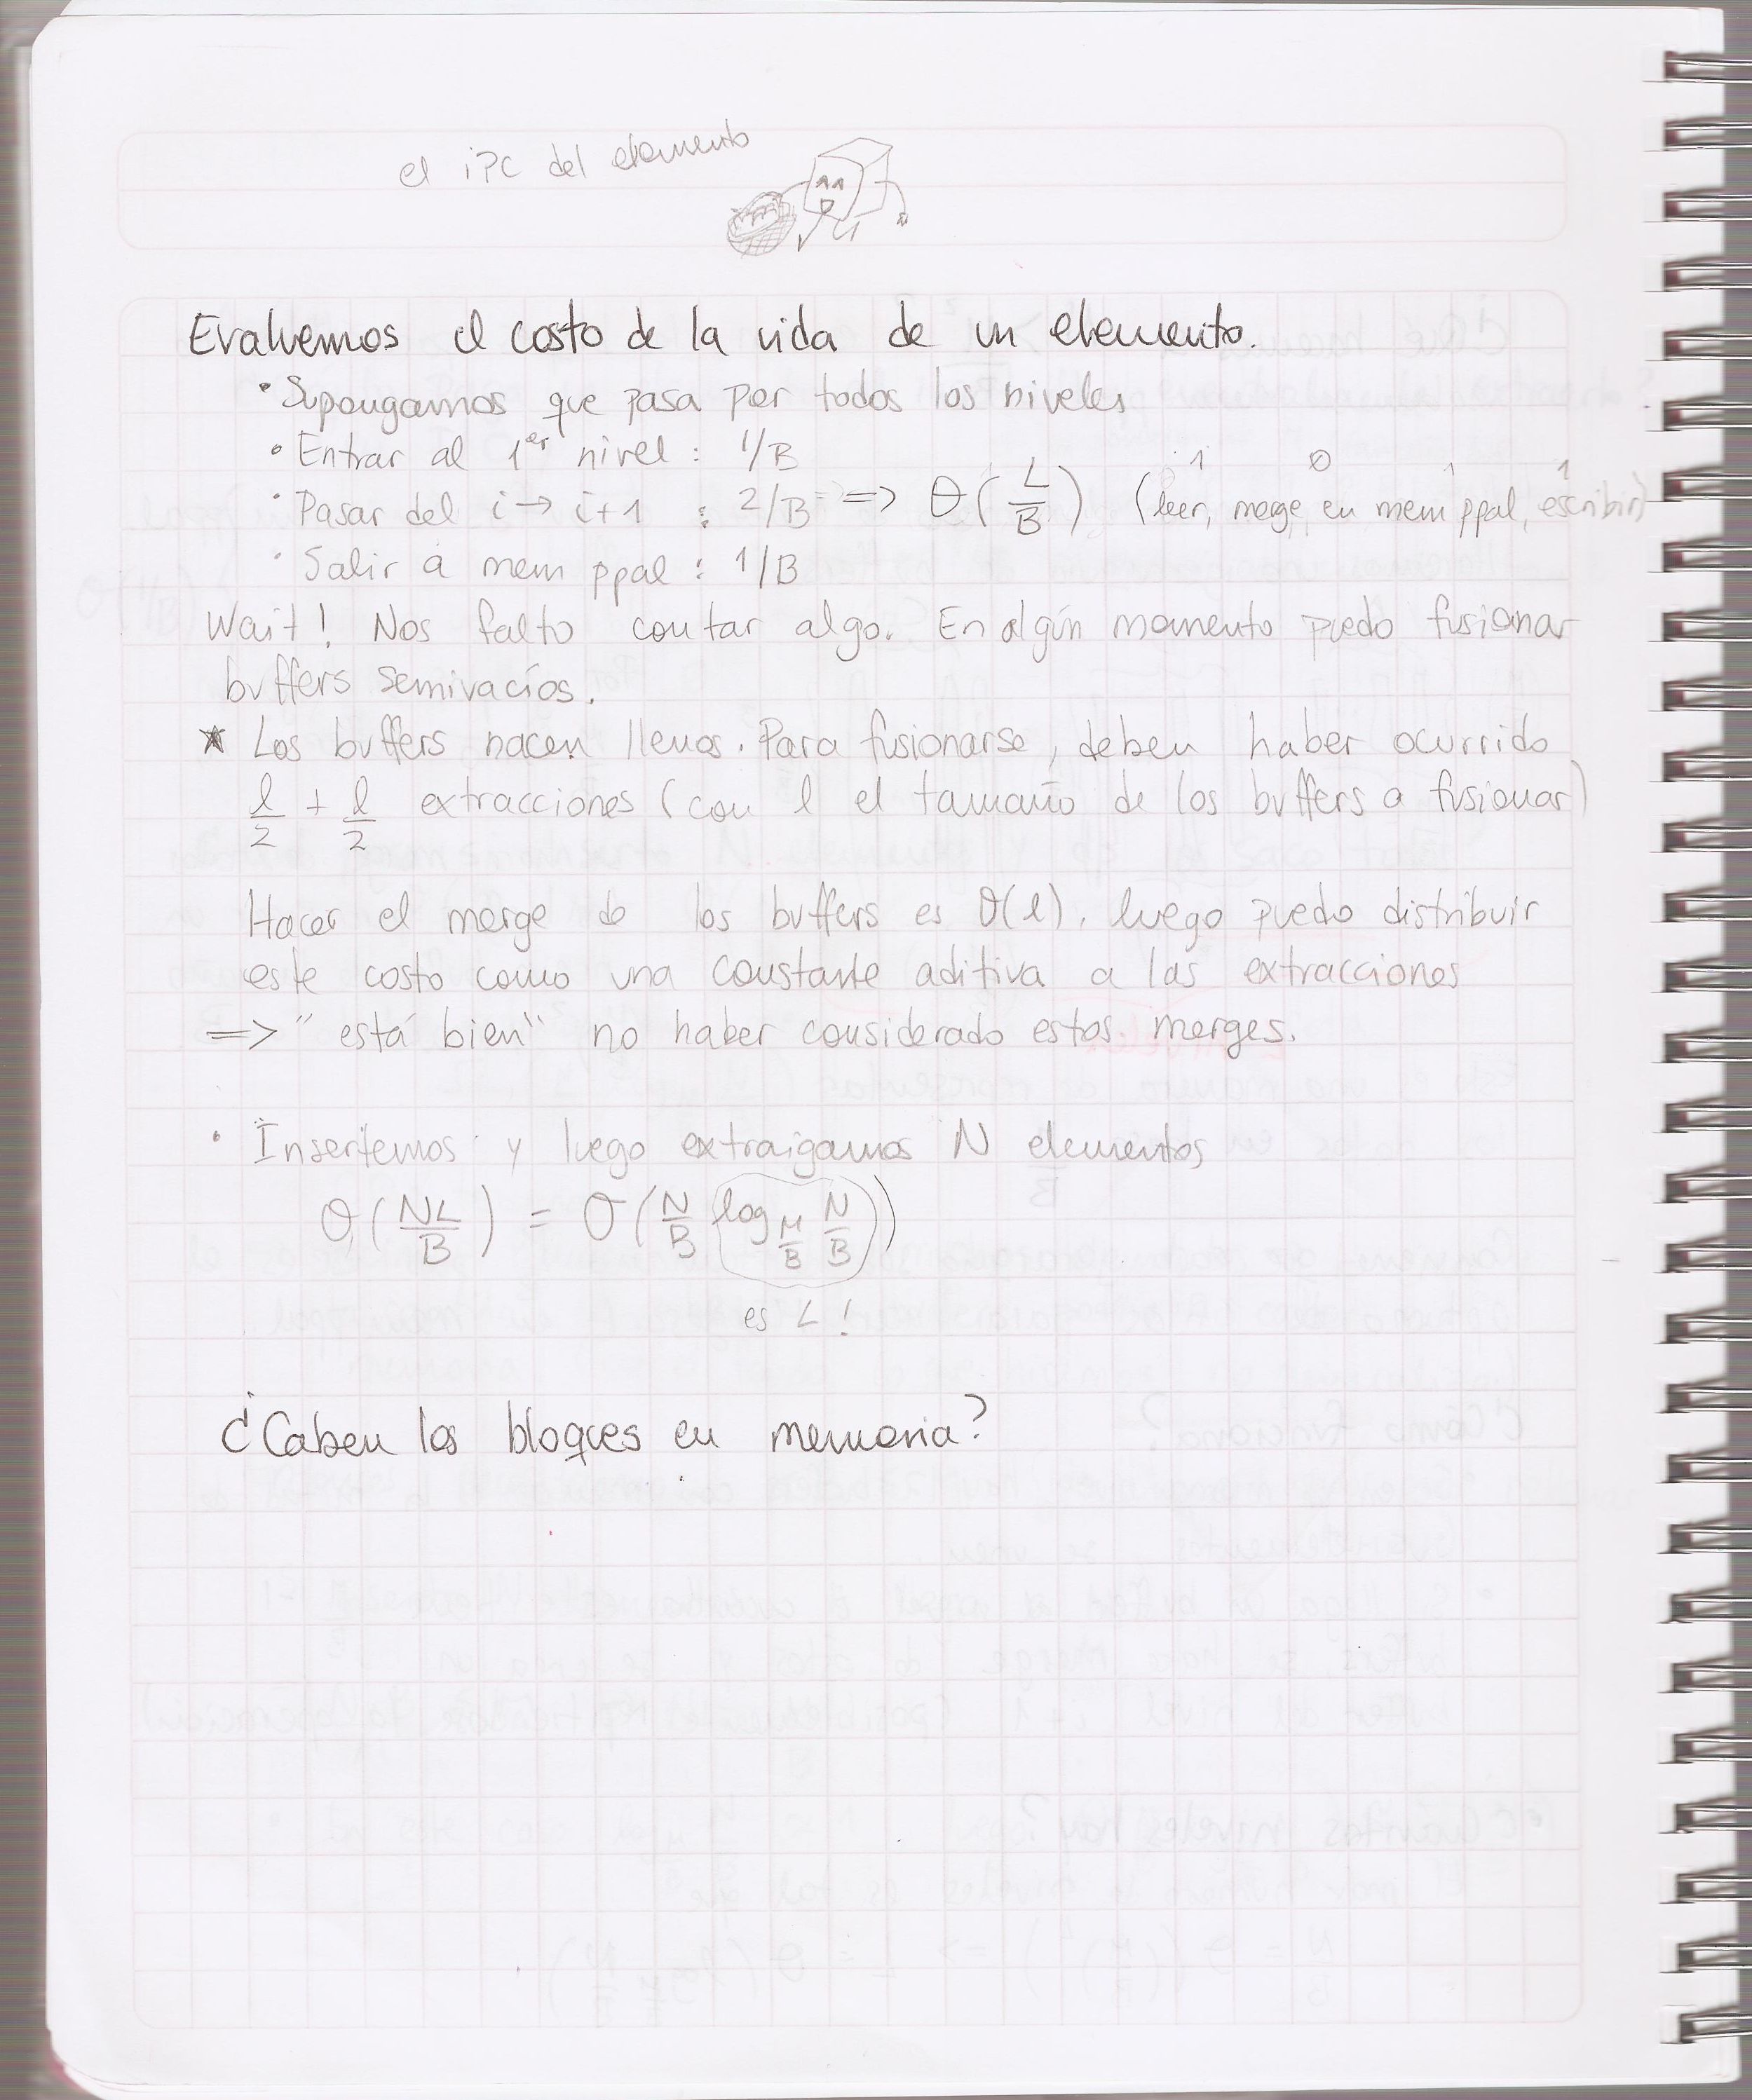 el iPC del elemento
Evaluemos el costo de la vida de un elemento.
• Supongamos que pasa por todos los niveles
• Entrar al 1er nivel : 1/B
1 0 1 1
• Pasar del i → i+1 : 2/B => Θ(L/B) (leer, merge en mem ppal, escribir)
• Salir a mem ppal : 1/B
Wait! Nos falto contar algo. En algún momento puedo fusionar
buffers semivacíos.
★ Los buffers nacen llenos. Para fusionarse, deben haber ocurrido
l/2 + l/2 extracciones (con l el tamaño de los buffers a fusionar)
Hacer el merge de los buffers es O(l), luego puedo distribuir
este costo como una constante aditiva a las extracciones
=> "está bien" no haber considerado estos merges.
• Insertemos y luego extraigamos N elementos
O(NL/B) = O(N/B log M/B N/B)
es L!
¿Caben los bloques en memoria?